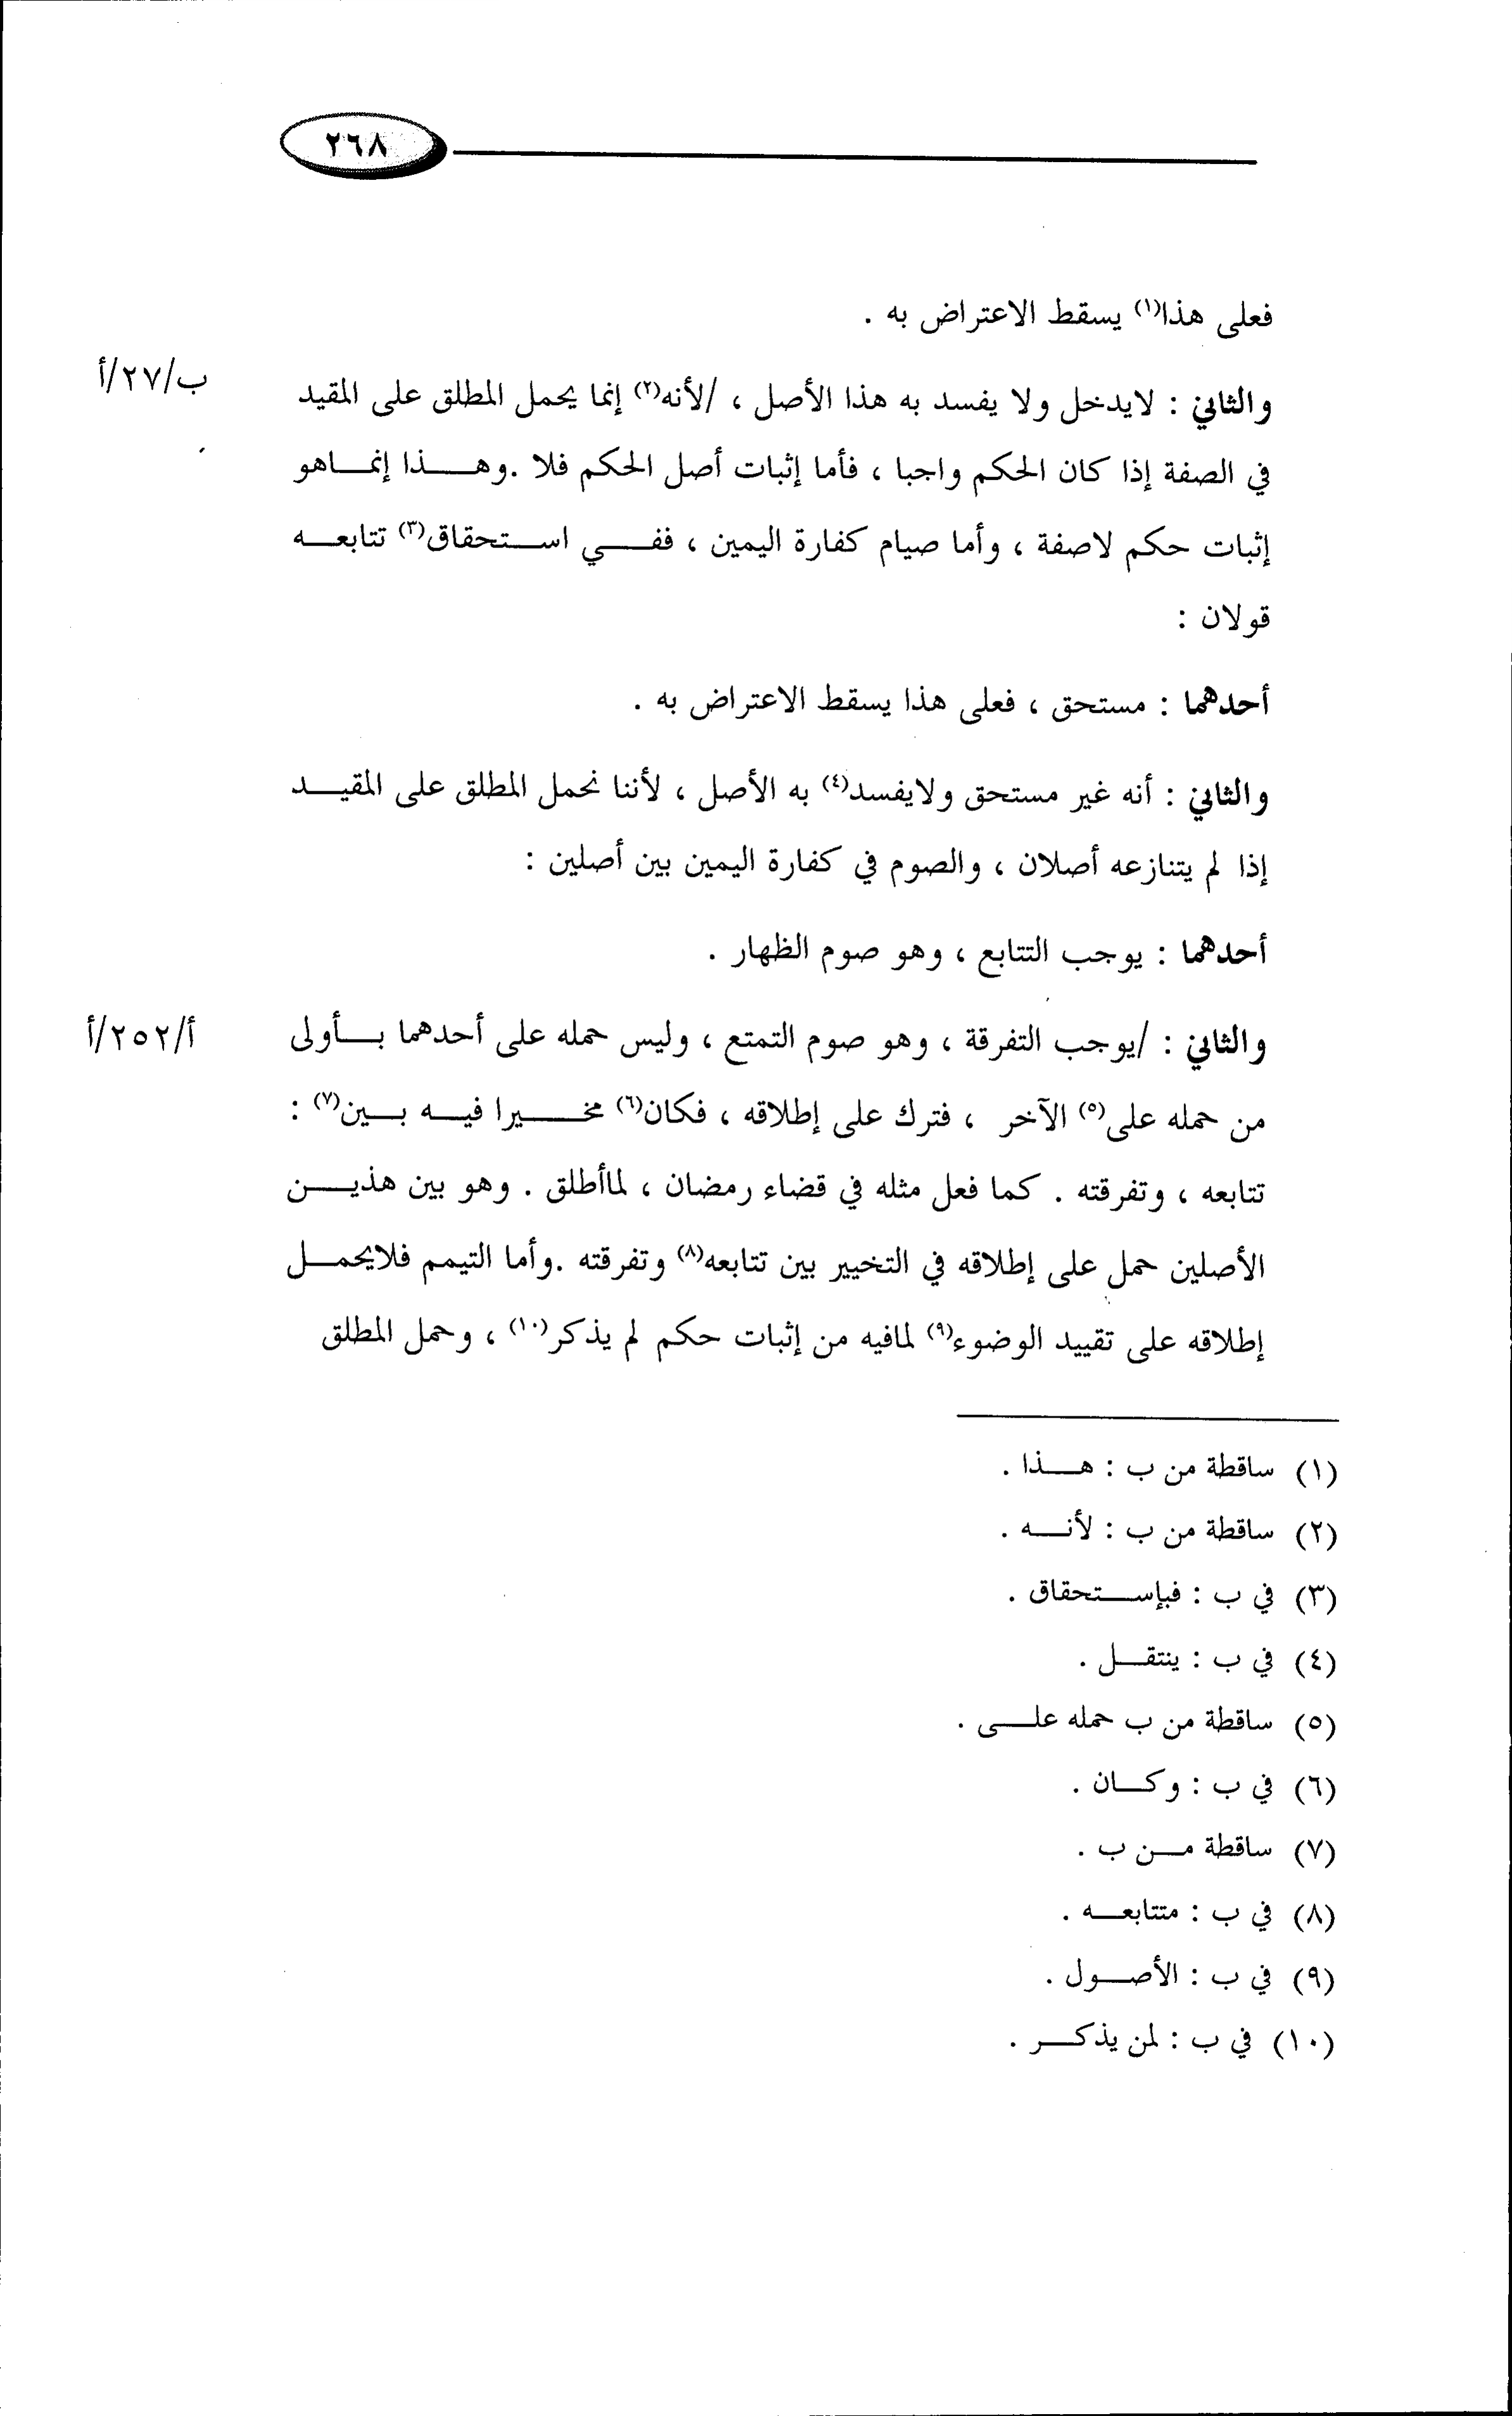 ٢٦٨
فعلى هذا(١) يسقط الاعتراض به .
والثاني : لايدخل ولا يفسد به هذا الأصل ، /لأنه(٢) إنما يحمل المطلق على المقيد
ب/٢٧/أ
في الصفة إذا كان الحكم واجبا ، فأما إثبات أصل الحكم فلا .وهـــذا إنمـــاهو
إثبات حكم لاصفة ، وأما صيام كفارة اليمين ، ففـــي اســـتحقاق(٣) تتابعـــه
قولان :
أحدهما : مستحق ، فعلى هذا يسقط الاعتراض به .
والثاني : أنه غير مستحق ولايفسد(٤) به الأصل ، لأننا نحمل المطلق على المقيـــد
إذا لم يتنازعه أصلان ، والصوم في كفارة اليمين بين أصلين :
أحدهما : يوجب التتابع ، وهو صوم الظهار .
والثاني : /يوجب التفرقة ، وهو صوم التمتع ، وليس حمله على أحدهما بـــأولى
أ/٢٥٢/أ
من حمله على(٥) الآخر ، فترك على إطلاقه ، فكان(٦) مخـــيرا فيـــه بـــين(٧) :
تتابعه ، وتفرقته . كما فعل مثله في قضاء رمضان ، لماأطلق . وهو بين هذيـــن
الأصلين حمل على إطلاقه في التخيير بين تتابعه(٨) وتفرقته .وأما التيمم فلايحمـــل
إطلاقه على تقييد الوضوء(٩) لمافيه من إثبات حكم لم يذكر(١٠) ، وحمل المطلق
(١) ساقطة من ب : هـــذا .
(٢) ساقطة من ب : لأنـــه .
(٣) في ب : فبإســـتحقاق .
(٤) في ب : ينتقـــل .
(٥) ساقطة من ب حمله علـــى .
(٦) في ب : وكـــان .
(٧) ساقطة مـــن ب .
(٨) في ب : متتابعـــه .
(٩) في ب : الأصـــول .
(١٠) في ب : لمن يذكـــر .